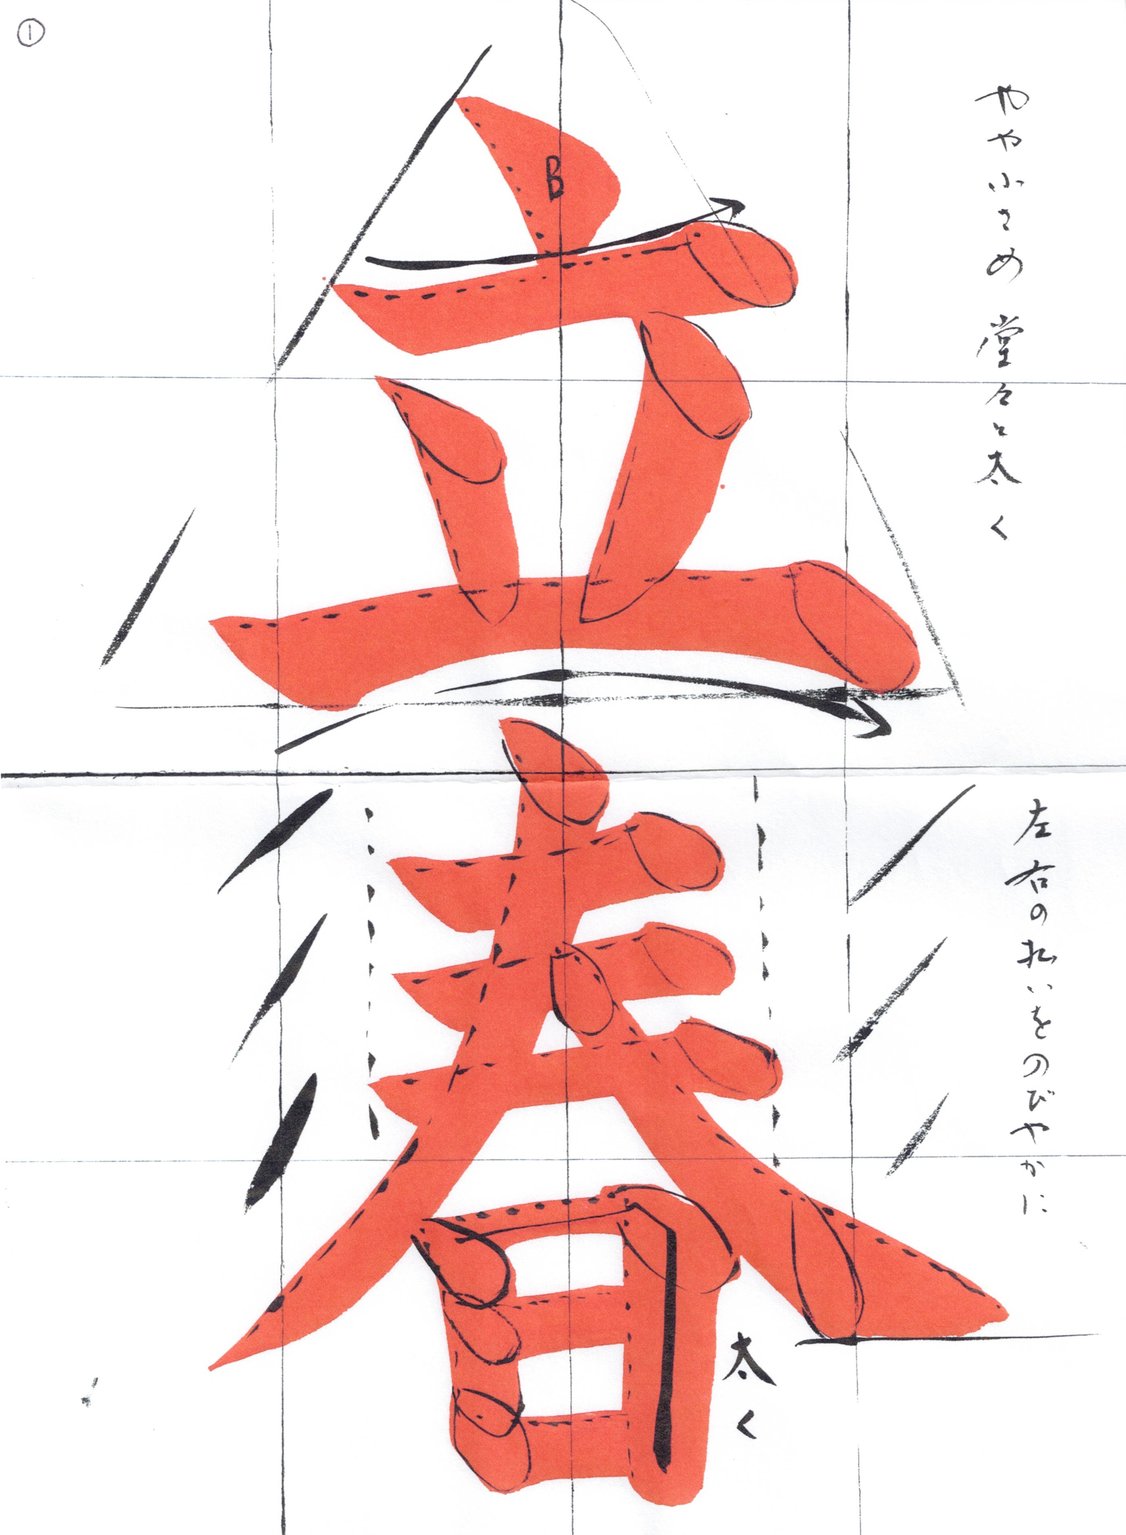 ①
立春
B
やや小さめ 堂々と太く
左右の払いをのびやかに
太く